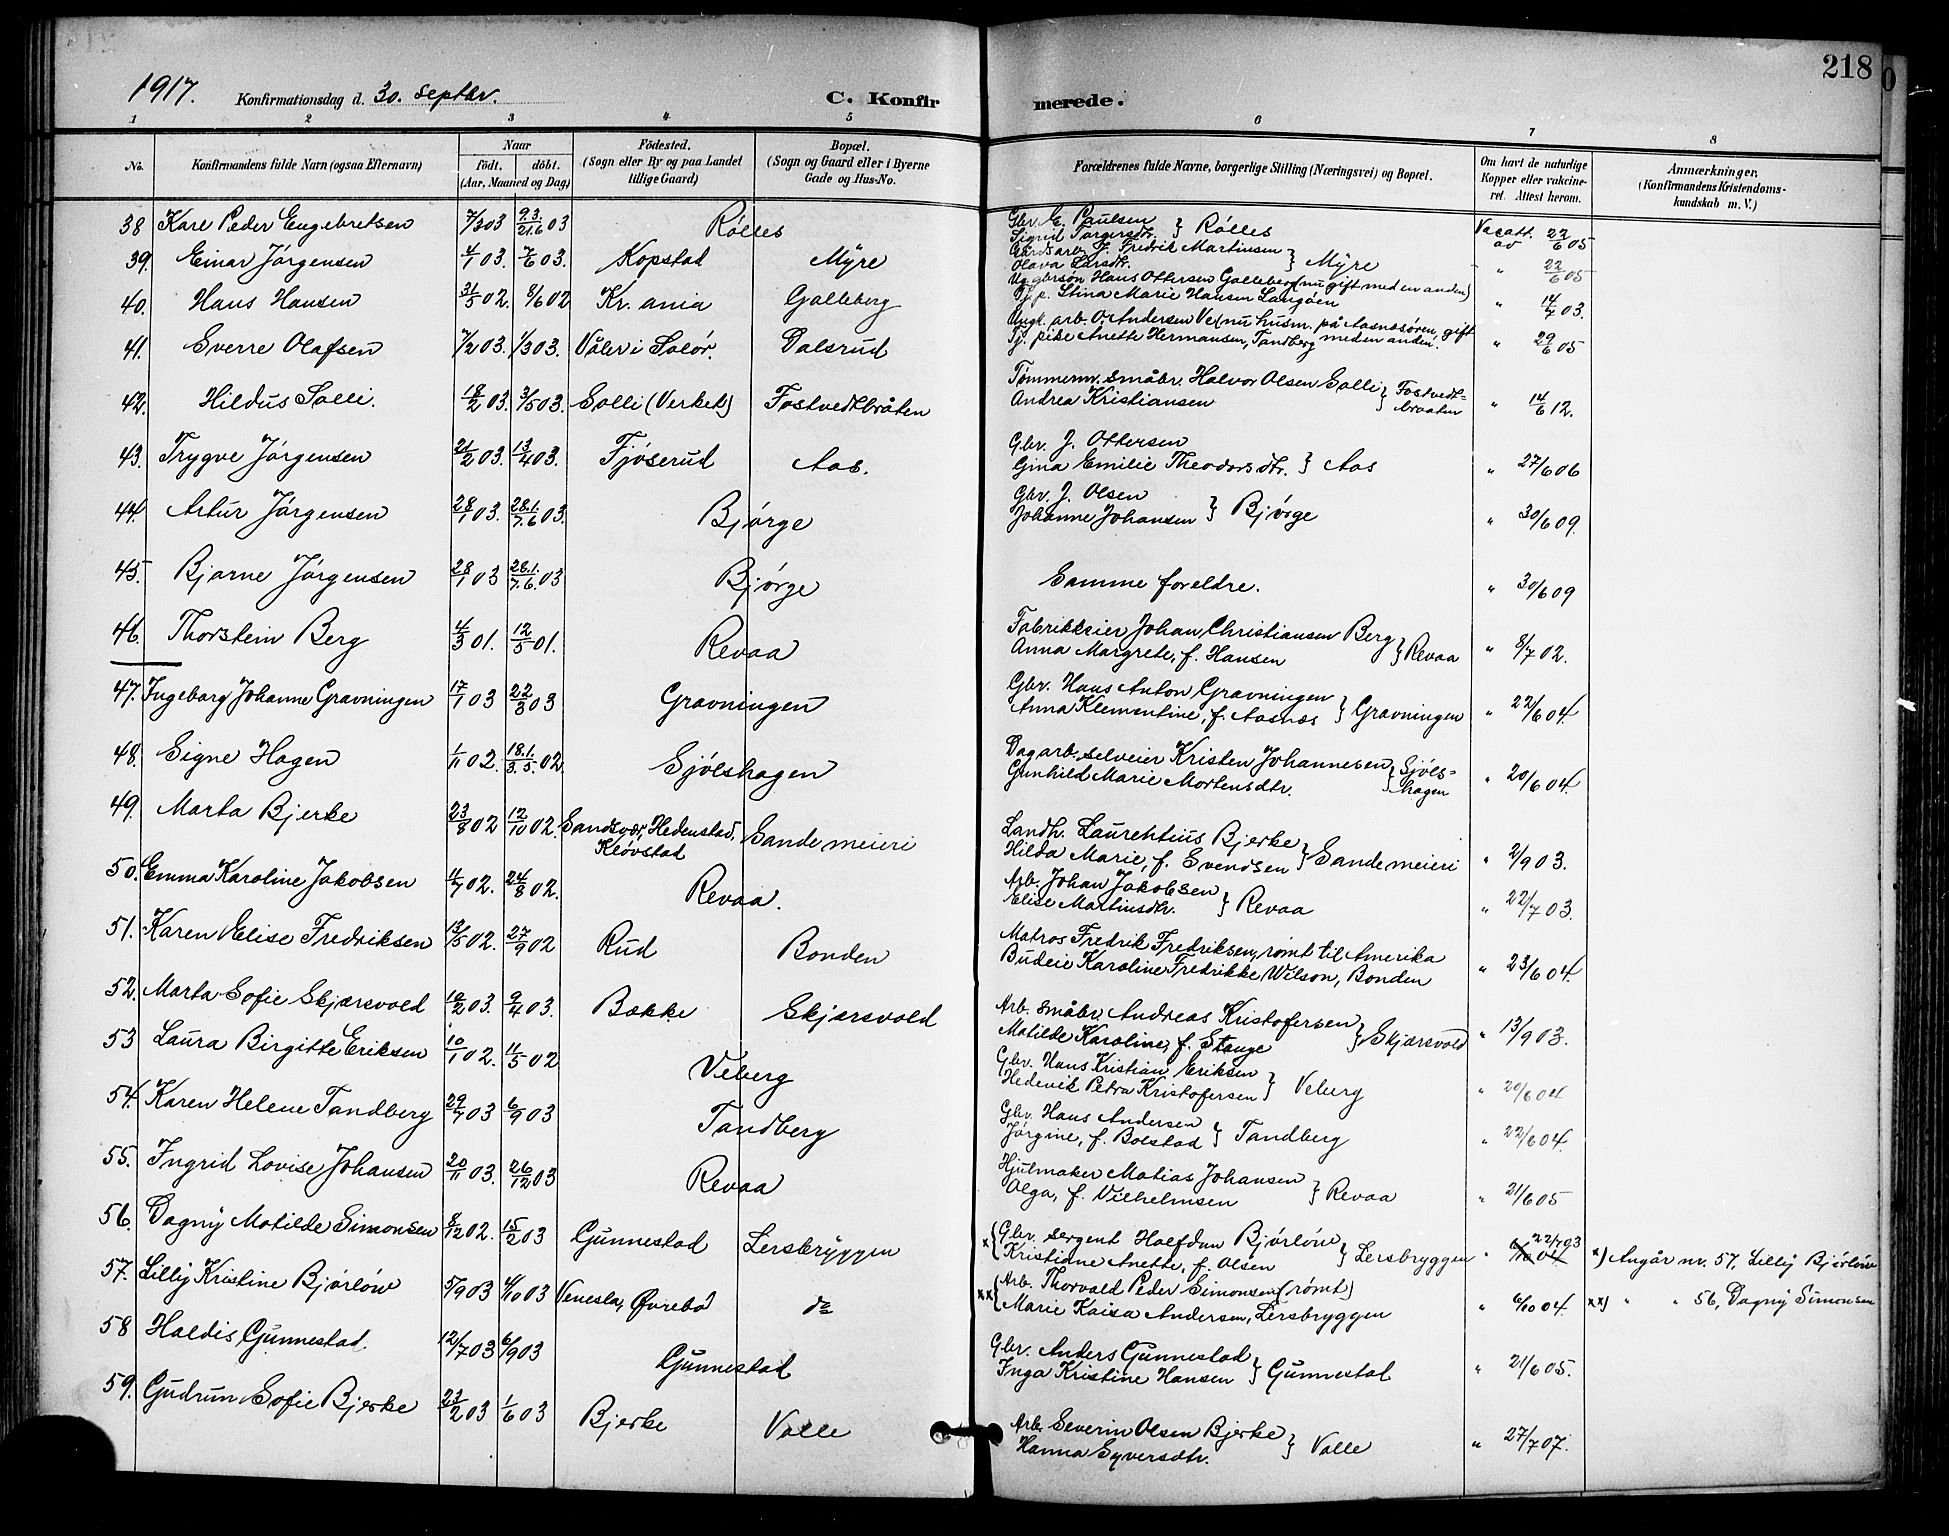 218
1917. Konfirmationsdag d. 30. septbr. C. Konfirmerede.
1 2 3 4 5 6 7 8
No. Konfirmandens fulde Navn (ogsaa Efternavn) Naar født. døbt. (Aar, Maaned og Dag) Födested. (Sogn eller By og paa Landet tillige Gaard) Bopæl. (Sogn og Gaard eller i Byerne Gade og Hus-No. Forældrenes fulde Navne, borgerlige Stilling (Næringsvei) og Bopæl. Om havt de naturlige Kopper eller vakcineret. Attest herom. Anmærkninger. (Konfirmandens Kristendomskundskab m. V.)
38 Kare Peder Engebretsen 7/3 03 9.3./21.6 03 Rølles Gbr. E. Paulsen Sigrid Torgersdtr. } Rölles Vacatt. av 22/6 05
39. Einar Jørgensen 4/1 03. 7/6 03. Kopstad Myre Gårdsarb. J. Fredrik Martinsen Olava Larsdtr. } Myre " 22/6 05
40. Hans Hansen 31/5 02. 8/6 02 Kr.ania Galleberg Ug. gbrsøn Hans Ottersen Galleberg (nu gift med en anden) Tj. p. Stina Marie Hansen Langöen " 14/7 03.
41. Sverre Olafsen 7/2 03. 1/3 03. Våler i Solør. Dalsrud Ungk. arb. O. Andersen Ve (nu husm. på Aasnæsøren, gift Tj. pike Anette Hermansen, Tandberg med en anden. " 29/6 05
42. Hildus Solli. 18/2 03. 3/5 03. Solli (Verket) Fostvedtbråten Tømmerm. småbr. Halvor Olsen Solli Andrea Kristiansen } Fostvedt-braaten " 14/6 12.
43. Trygve Jørgensen 21/2 03. 13/4 03. Fjøserud Aas. Gbr. J. Ottersen Gina Emilie Theodorsdtr. } Aas " 27/6 06
44. Artur Jørgensen 28/1 03. 28.1./7.6 03. Bjørge Gbr. J. Olsen Johanne Johansen } Bjørge " 30/6 09.
45. Bjarne Jørgensen 28/1 03 28.1./7.6. 03 Bjørge Samme foreldre. " 30/6 09
46. Thorstein Berg 4/3 01. 12/5 01. Revaa Fabrikkeier Johan Christiansen Berg Anna Margrete, f. Hansen } Revaa " 8/7 02.
47. Ingeborg Johanne Gravningen 17/1 03 22/3 03 Gravningen Gbr. Hans Anton Gravningen Anna Klementine, f. Aasnæs } Gravningen " 22/6 04.
48. Signe Hagen 1/11 02. 18.1./3.5. 02 Sjølshagen Dagarb. selveier Kristen Johannesen Gunhild Marie Mortensdtr. } Sjøls-hagen " 20/6 04.
49. Marta Bjerke 23/8 02 12/10 02. Sandsvær, Hedenstad, Kløvstad Sande meieri Landh. Laurentius Bjerke Hilda Marie, f. Svendsen } Sande meieri " 2/9 03.
50. Emma Karoline Jakobsen 4/7 02. 24/8 02. Revaa. Arb. Johan Jakobsen Elise Martinsdtr. } Revaa " 22/7 03.
51. Karen Elise Fredriksen 13/5 02. 27/9 02 Rud Bonden Matros Fredrik Fredriksen, rømt til Amerika Budeie Karoline Fredrikke Wilson, Bonden " 23/6 04.
52. Marta Sofie Skjærsvold 10/2 03. 9/4 03. Bakke Skjærsvold Arb. småbr. Andreas Kristofersen Matilde Karoline, f. Stange } Skjærsvold " 13/9 03.
53 Laura Birgitte Eriksen 10/1 02. 11/5 02 Veberg Gbr. Hans Kristian Eriksen Hedevik Petra Kristofersen } Veberg " 20/6 04
54. Karen Helene Tandberg 29/7 03 6/9 03 Tandberg Gbr. Hans Andersen Jørgine, f. Bolstad } Tandberg " 22/6 04.
55. Ingrid Lovise Johansen 20/11 03. 26/12 03 Revaa Hjulmaker Matias Johansen Olga, f. Vilhelmsen } Revaa " 21/6 05
56. Dagny Matilde Simonsen 8/12 02. 15/2 03 Gunnestad Lersbryggen x { Gbr. sergent Halfdan Bjørløw Kristiane Anette, f. Olsen } Lersbryggen " 22/7 03 x) Angår nr. 57, Lilly Bjørløw
57. Lilly Kristine Bjørløw 5/9 03 4/10 03 Venesla, Øvrebø do xx { Arb. Thorvald Peder Simonsen (rømt) Marie Kaisa Andersen, Lersbryggen " 6/10 04. xx) " " 56, Dagny Simonsen
58 Haldis Gunnestad. 12/7 03 6/9 03 Gunnestad Gbr. Anders Gunnestad Inga Kristine Hansen } Gunnestad " 21/6 05.
59. Gudrun Sofie Bjerke 23/2 03 1/6 03 Bjerke Valle Arb. Severin Olsen Bjerke Hanna Syversdtr. } Valle " 27/7 07.